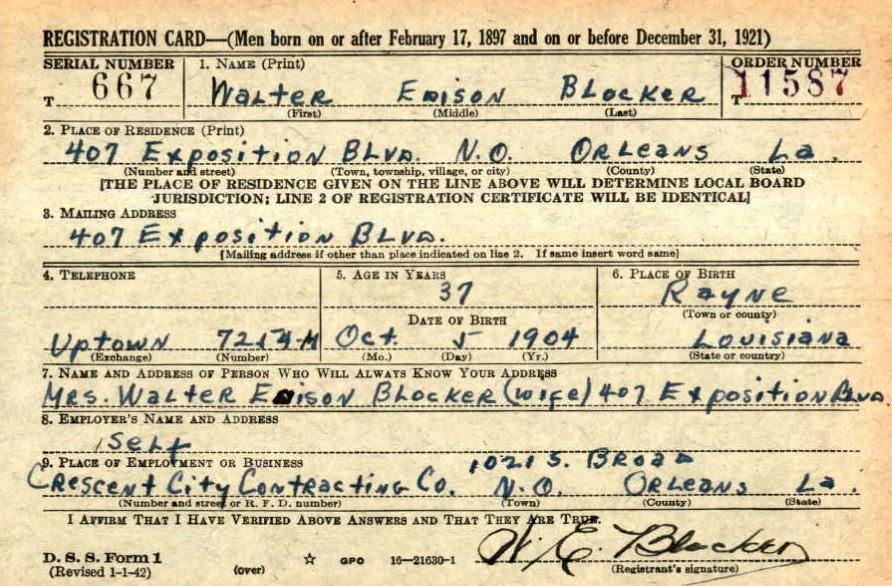 REGISTRATION CARD—(Men born on or after February 17, 1897 and on or before December 31, 1921)
SERIAL NUMBER 1. NAME (Print) ORDER NUMBER
T 667 WALTER EDISON BLOCKER T 11587
(First) (Middle) (Last)
2. PLACE OF RESIDENCE (Print)
407 Exposition BLVD. N.O. ORLEANS La.
(Number and street) (Town, township, village, or city) (County) (State)
[THE PLACE OF RESIDENCE GIVEN ON THE LINE ABOVE WILL DETERMINE LOCAL BOARD
JURISDICTION; LINE 2 OF REGISTRATION CERTIFICATE WILL BE IDENTICAL]
3. MAILING ADDRESS
407 Exposition BLVD.
[Mailing address if other than place indicated on line 2. If same insert word same]
4. TELEPHONE 5. AGE IN YEARS 6. PLACE OF BIRTH
37 RAYNE
(Town or county)
DATE OF BIRTH
Uptown Oct. 5 1904 LOUISIANA
(Exchange) (Number) (Mo.) (Day) (Yr.) (State or country)
7. NAME AND ADDRESS OF PERSON WHO WILL ALWAYS KNOW YOUR ADDRESS
MRS. WALTER EDISON BLOCKER (wife) 407 Exposition BLVD.
8. EMPLOYER'S NAME AND ADDRESS
Self
9. PLACE OF EMPLOYMENT OR BUSINESS 1021 S. BROAD
CRESCENT City CONTRACTING Co. N.O. ORLEANS La.
(Number and street or R. F. D. number) (Town) (County) (State)
I AFFIRM THAT I HAVE VERIFIED ABOVE ANSWERS AND THAT THEY ARE TRUE.
W. E. Blocker
D. S. S. Form 1
(Revised 1-1-42) (over) ☆ GPO 16—21630-1 (Registrant's signature)